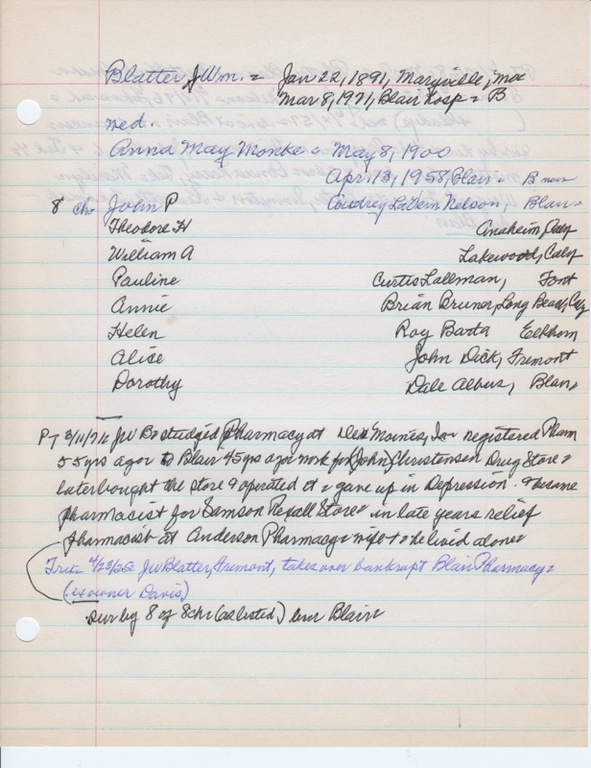 Blatter, J Wm. = Jan 22, 1891, Maryville, Mo
Mar 8, 1971, Blair hosp = B
wed.
Anna May Monke = May 8, 1900
Apr. 13, 1958, Blair = B
8 ch = John P Audrey LaVern Nelson, Blair =
Theodore H Anaheim, Caly
William A Lakewood, Caly
Pauline Curtis Lallman, Font
Annie Brian Bruner, Long Beach, Caly
Helen Roy Barta Elkhorn
Alice John Dick, Fremont
Dorothy Dale Albers, Blair
PT 3/11/71 JW B = studied Pharmacy at Des Moines, Ia = registered Pharm
55 yrs ago = to Blair 45 yrs ago = work for John Christensen Drug Store =
later bought the store & operated it = gave up in Depression. & became
pharmacist for Samson Rexall Store = in late years relief
pharmacist at Anderson Pharmacy = wife + = he lived alone =
JW Blatter, Fremont, takes over bankrupt Blair Pharmacy =
(ex owner Davis)
Sur by 8 of 8 chr (as listed) bur Blair